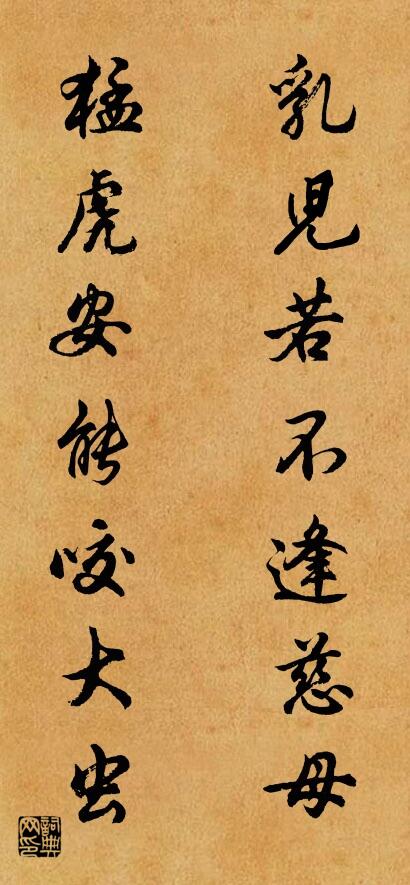 乳児若不逢慈母
猛虎安能咬大虫
詞典网印